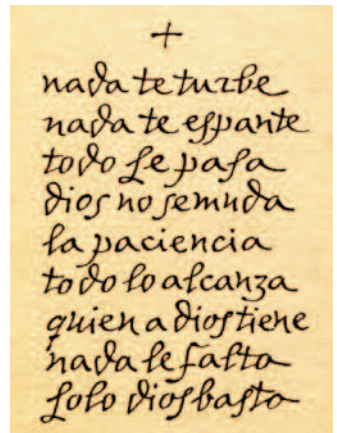 +
nada te turbe
nada te espante
todo se pasa
dios no se muda
la paciencia
todo lo alcanza
quien a dios tiene
nada le falta
solo dios basta